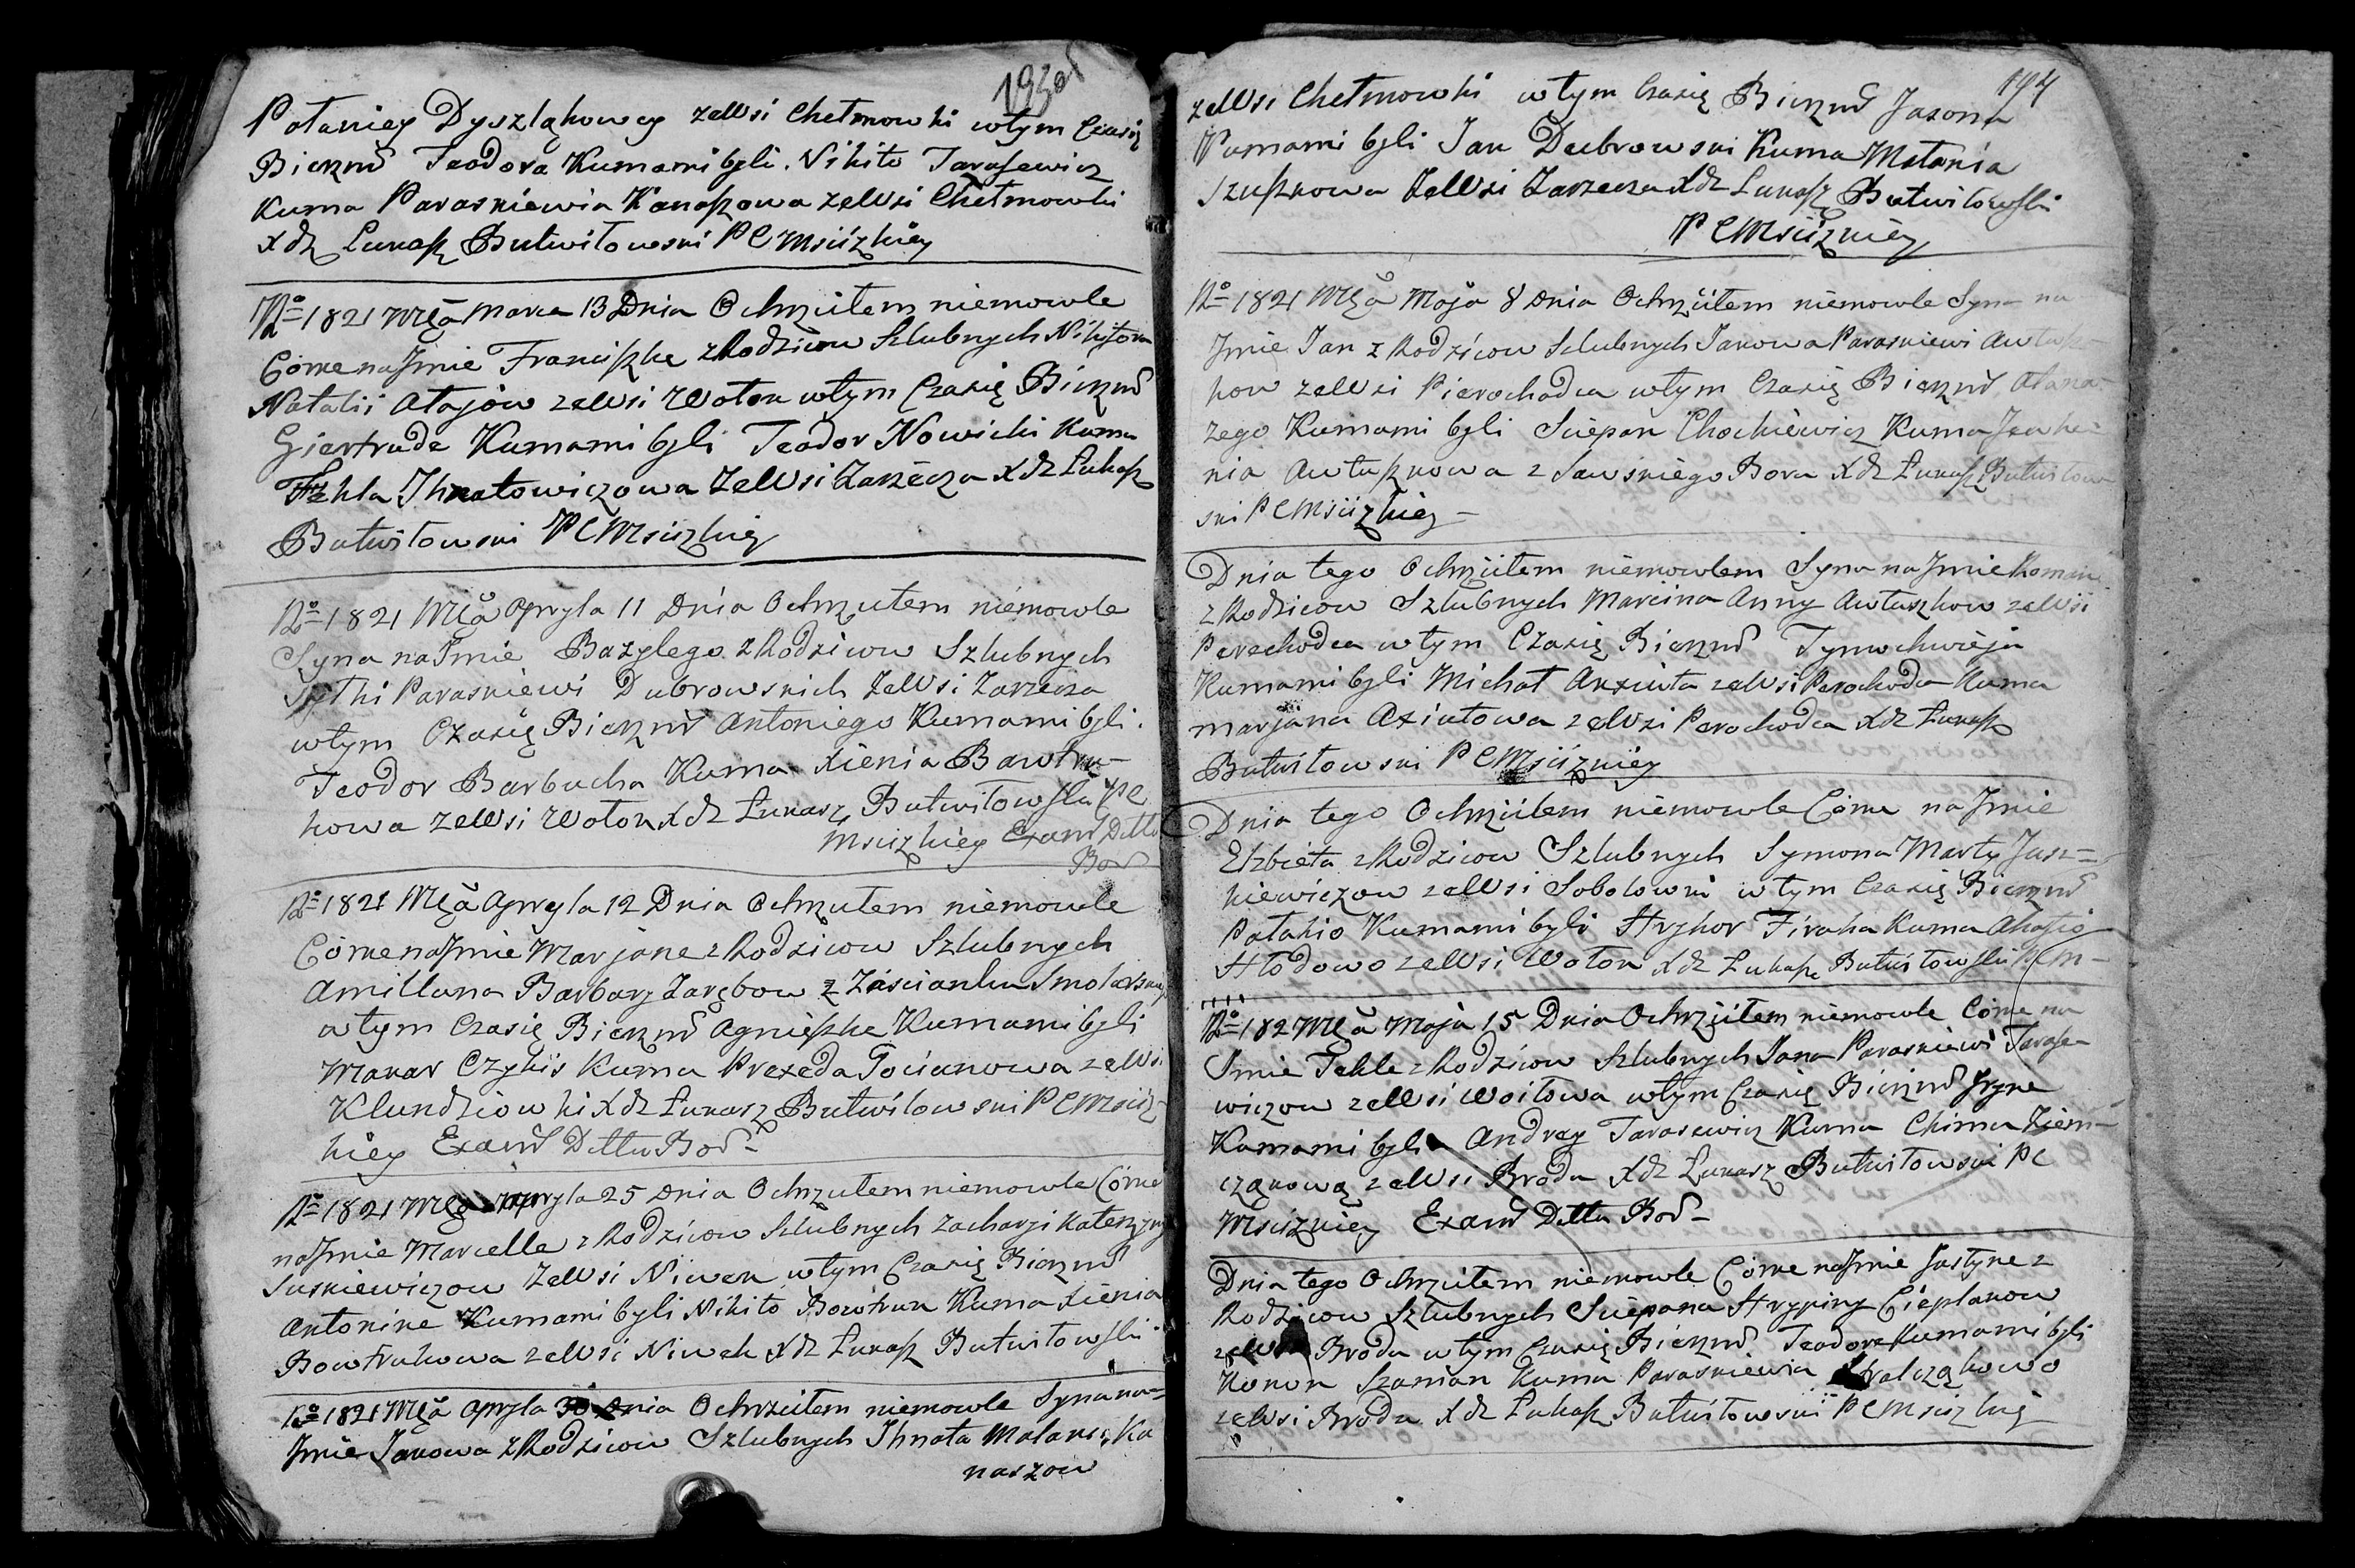 193 of
Połaniey Dyszląkowey zeWsi Chełmowki wtym Czasię
Bierzmd Teodora Kumami byli. Nikito Tarasewicz
Kuma Paraskiewia Kanaszowa zeWsi Chełmowki
Xdz Łukasz Butwiłowski PCMsciżkiey
No 1821 Mca Marca 13 Dnia Ochrzciłem niemowle
Córke na Jmie Franciszke z Rodzicow Szlubnych Nikytora
Natalii Atajow zeWsi Wołok wtym Czasię Bierzmd
Giertrude Kumami byli Teodor Nowicki Kuma
Tekla Jhnatowiczowa zeWsi Zarzecza Xdz Łukasz
Butwiłowski PCMsciżkiey
No 1821 Mca Apryla 11 Dnia Ochrzciłem niemowle
Syna na Jmie Bazylego z Rodzicow Szlubnych
Paraskiewi Dubrowskich zeWsi Zarzecza
wtym Czasię Bierzmd Antoniego Kumami byli.
Teodor Barbucha Kuma Xienia Bawtru-
kowa zeWsi Wołok Xdz Łukasz Butwiłowski PC
Msciżkiey Exand Dttu
Bod
No 1821 Mca Apryla 12 Dnia Ochrzciłem niemowle
Córke na Jmie Marjane z Rodzicow Szlubnych
Amilluna Barbary Zarębow z Zascianku
wtym Czasię Bierzmd Agnieszke Kumami byli
Makar Czykis Kuma Prexeda Tocianowa zeWsi
Klundziowki Xdz Łukasz Butwiłowski PCMsciż
kiey Exand Dttu Bod-
No 1821 Mca Apryla 25 Dnia Ochrzciłem niemowle Córke
na Jmie Marcelle z Rodzicow Szlubnych Zacharji Katerzyny
Suskiewiczow zeWsi Niwek wtym Czasię Bierzmd
Antonine Kumami byli Nikito Bowtruk Kuma Xienia
Bowtrukowa zeWsi Niwek Xdz Łukasz Butwiłowski
No 1821 Mca Apryla 30 Dnia Ochrzciłem niemowle Syna na=
Jmie Jakowa z Rodzicow Szlubnych Jhnata Malan Ka
naszow
194
zeWsi Chełmowki wtym Czasię Bierzmd Jazona
Kumami byli Jan Dubrowski Kuma Mełania
Szuszkowa zeWsi Zarzecza Xdz Łukasz Butwiłowski
PCMsciżkiey
No 1821 Mca Maja 8 Dnia Ochrzciłem niemowle Syna na
Jmie Jan z Rodzicow Szlubnych Jakowa Paraskiewi Awtusz
kow zeWsi Pierochodca wtym Czasię Bierzmd Atana
zego Kumami byli Sciepan Chockiewicz Kuma Jewhe
nia Awtuszkowa z Sawskiego Boru Xdz Łukasz Butwiłow
ski PCMsciżkiey-
Dnia tego Ochrzciłem niemowlem Syna na Jmie
z Rodzicow Szlubnych Marcina Anny Awtuszkow zeWsi
Perechodca wtym Czasię Bierzmd Tymochwieja
Kumami byli Michał Axiuta zeWsi Perochodca Kuma
Marjana Axiutowa zeWsi Perochodca Xdz Łukasz
Butwiłowski PCMsciżkiey
Dnia tego Ochrzciłem niemowle Córke na Jmie
Elzbieta z Rodzicow Szlubnych Symona Marty Jusz=
kiewiczow zeWsi Sobolowki wtym Czasię Bierzmd
Połahio Kumami byli Hryhor Firaha Kuma Ahafio
Hłodowo zeWsi Wołok Xdz Łukasz Butwiłowski PCM-
No 182 Mca Maja 15 Dnia Ochrzciłem niemowle Córke na
Jmie Tekle z Rodzicow Szlubnych Jana Paraskiewi Tarase-
wiczow zeWsi Woitowa wtym Czasię Bierzmd Jryne
Kumami byli Andrey Tarasewicz Kuma Chima
czakową zeWsi Broda Xdz Łukasz Butwiłowski PC
Msciżkiey Exand Dttu Bod-
Dnia tego Ochrzciłem niemowle Córke na Jmie Justyne z
Rodzicow Szlubnych Sciepana Hrypiny Cieplakow
zeWsi Broda wtym Czasię Bierzmd Teodore Kumami byli
Konon Szaman Kuma Paraskiewia
zeWsi Broda Xdz Łukasz Butwiłowski PCMsciżkiey